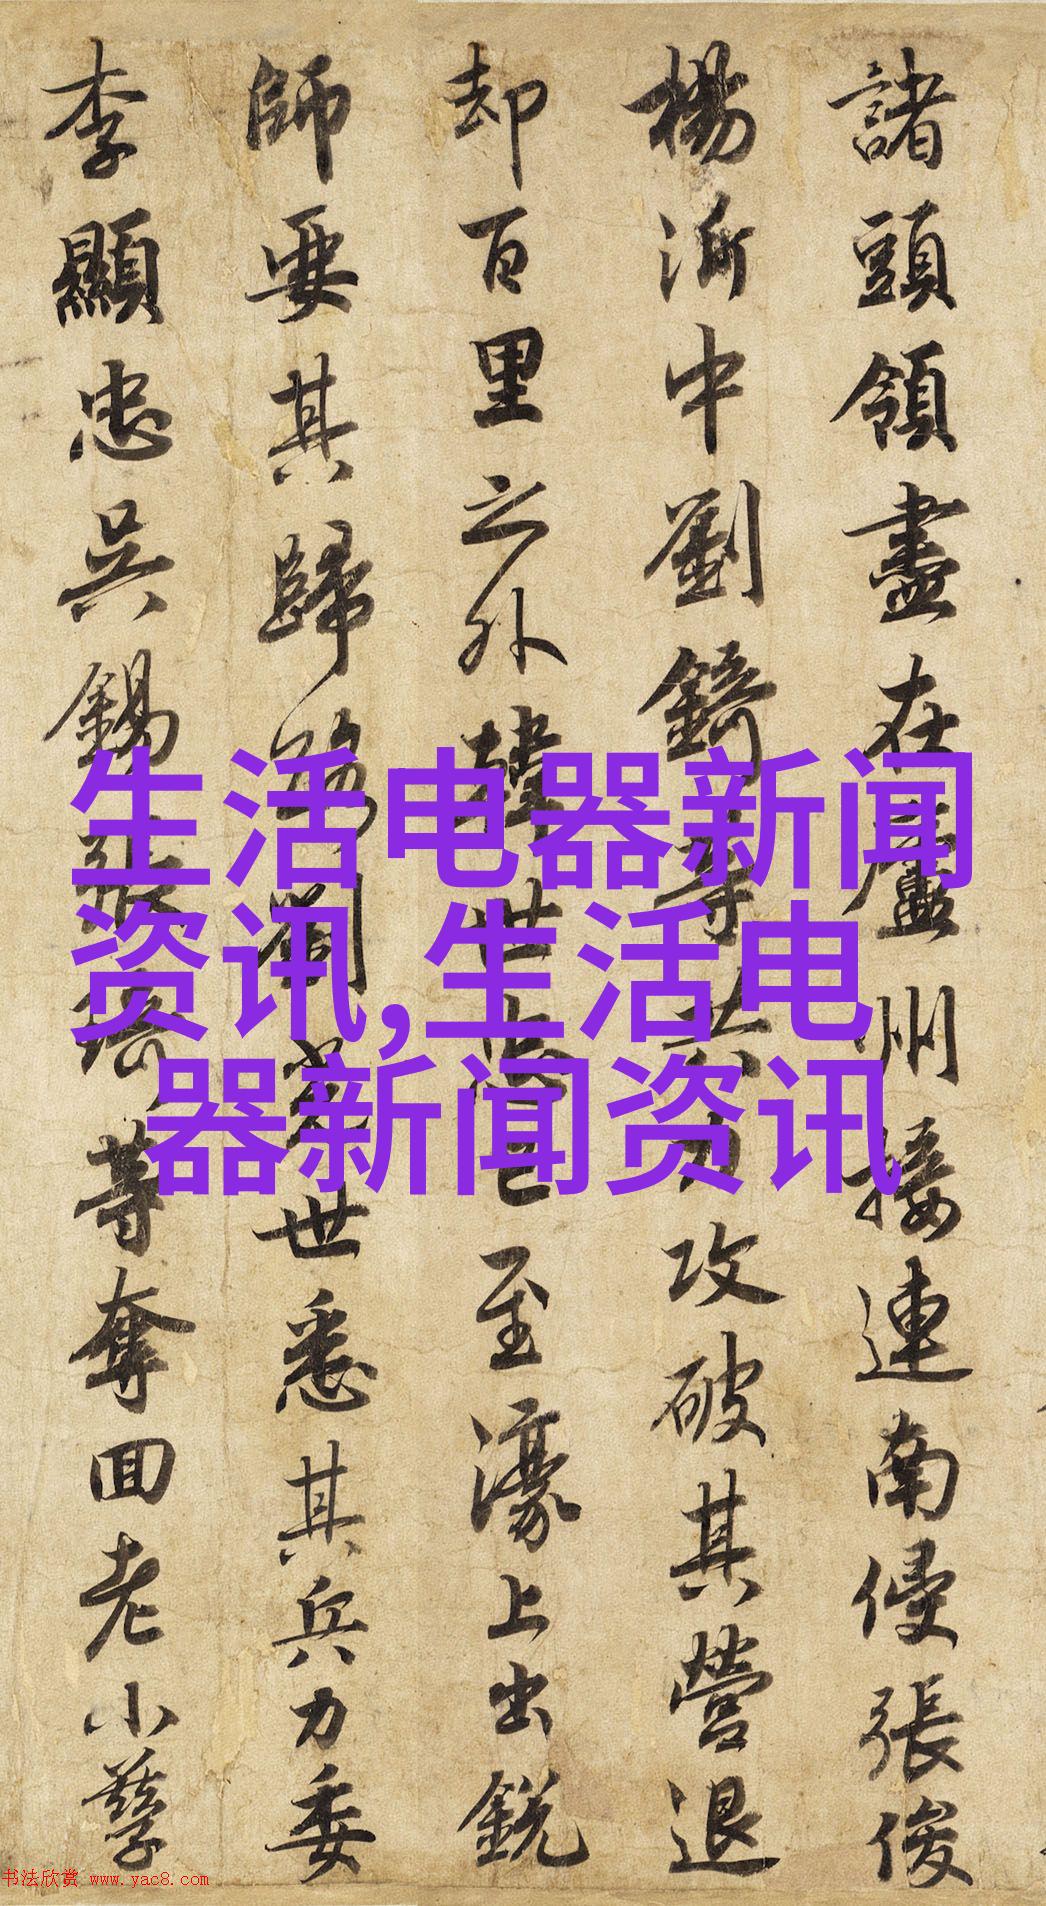 諸頭領盡在廬州接連南侵張俊
楊沂中劉錡等共力攻破其營退
却百里之外韓世忠已至濠上出銳
師要其歸路劉光世悉其兵力委
李顯忠吳錫張琦等奪回老小孳
生活电器新闻
资讯,生活电
器新闻资讯
书法欣赏 www.yac8.com